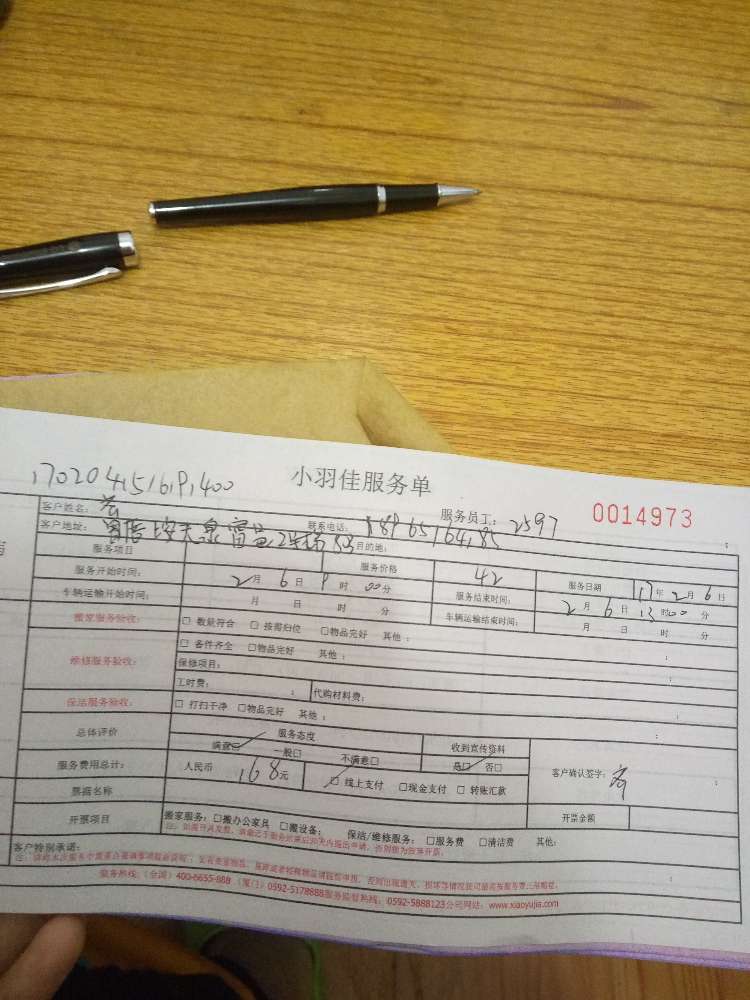 小羽佳服务单
客户姓名:
服务员工: 2597
0014973
客户地址:
联系电话: 18965164185
目的地:
服务项目
服务价格 42
服务日期 17年2月6日
服务开始时间: 2月6日9时00分
服务结束时间: 2月6日13时00分
车辆运输开始时间: 月 日 时 分
车辆运输结束时间: 月 日 时 分
搬家服务验收: □数量符合 □按需归位 □物品完好 其他:
维修服务验收: □备件齐全 □物品完好 其他:
保修项目:
工时费: 代购材料费:
保洁服务验收: □打扫干净 □物品完好 其他:
总体评价
服务态度
收到宣传资料
满意□ 一般□ 不满意□
是□ 否□
客户确认签字:
服务费用总计: 人民币 168元 □线上支付 □现金支付 □转账汇款
票据名称
开票项目
搬家服务: □搬办公家具 □搬设备: 保洁/维修服务: □服务费 □清洁费 其他:
开票金额
客户特别承诺:
服务热线: (全国) 400-6655-888 (厦门) 0592-5178888服务监督热线: 0592-5888123公司网站: www.xiaoyujia.com